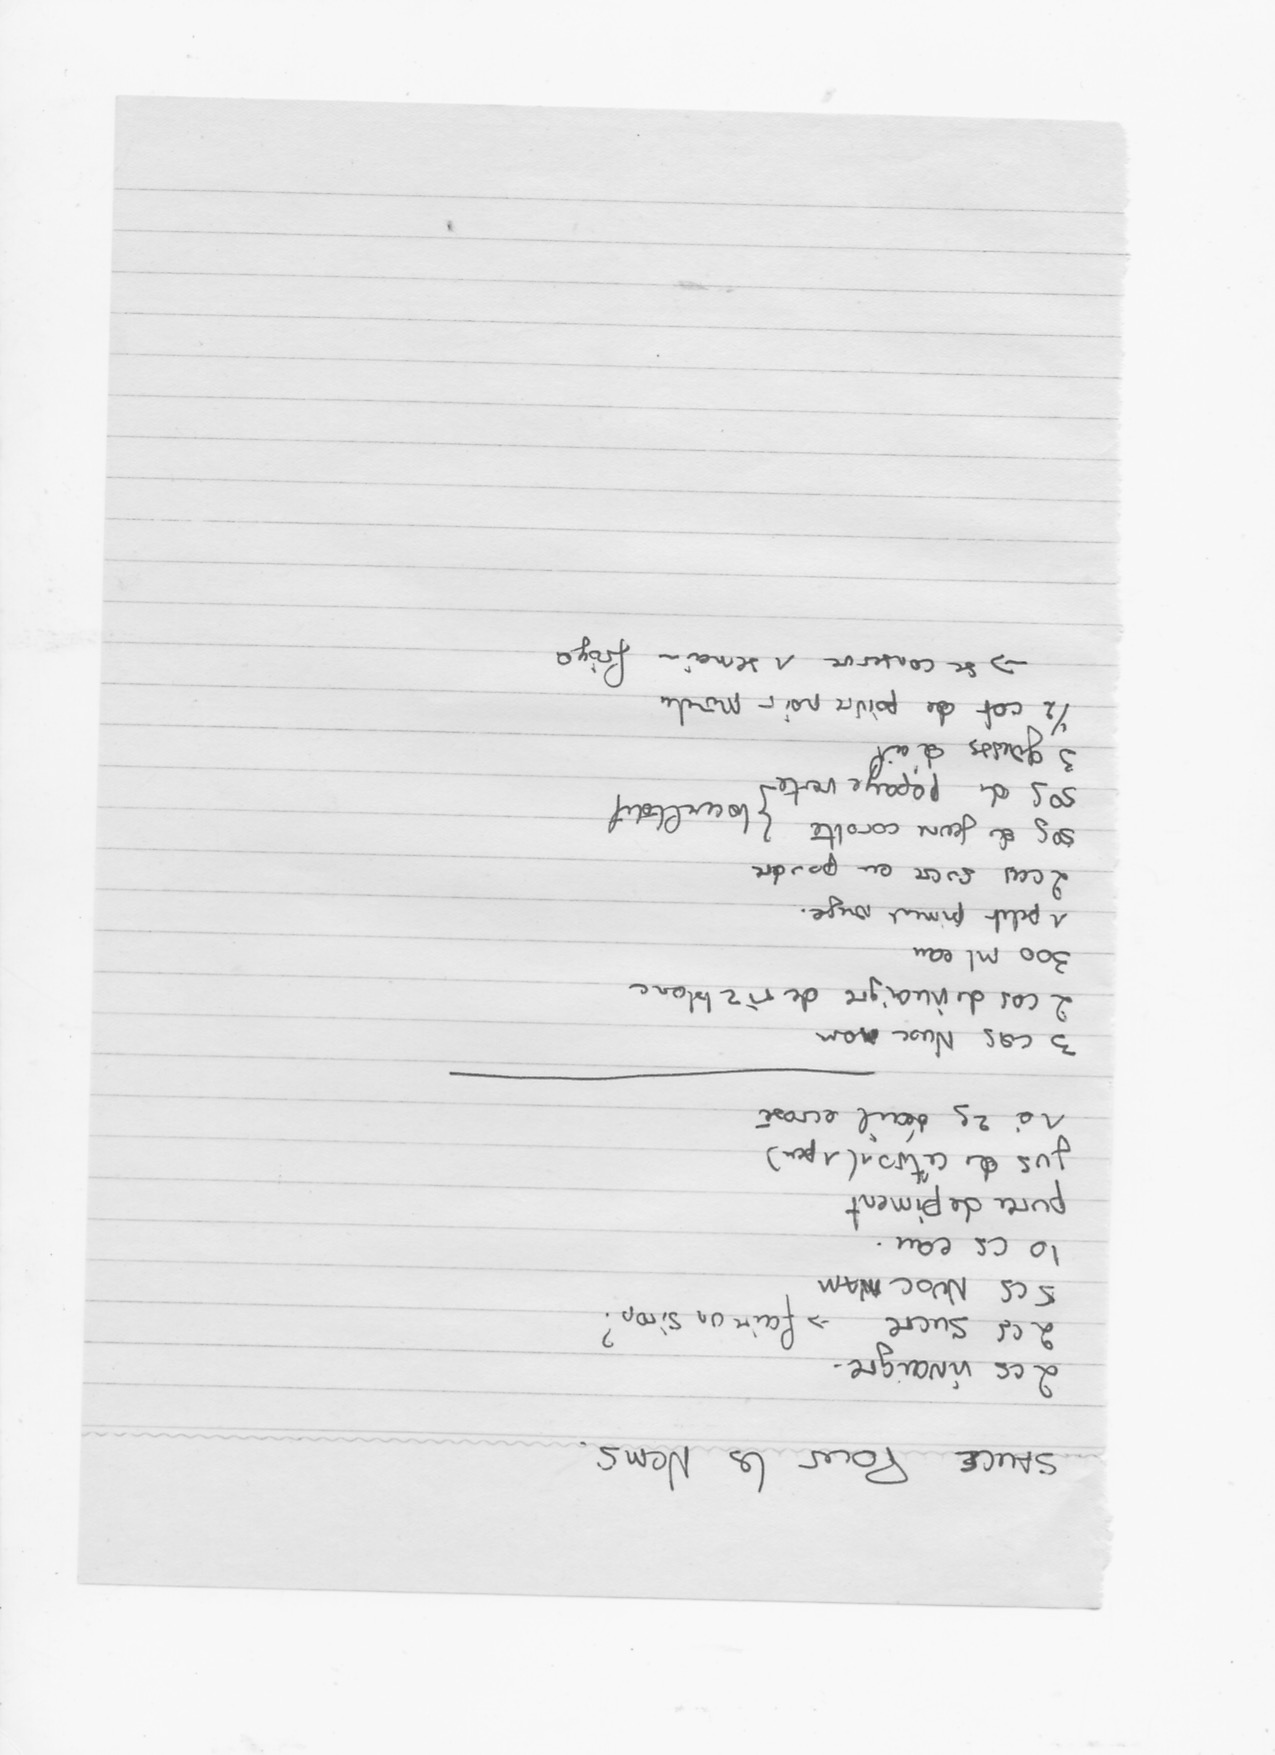 SAUCE POUR les Nems.
2 cs vinaigre.
2 cs sucre → faire un sirop ?
5 cs NUOC MAM
10 cs eau.
purée de piment
jus de citron (1 peu)
1 à 2g d'ail ecrasé
3 cas Nuoc mam
2 cas de vinaigre de riz blanc
300 ml eau
1 petit piment rouge.
2 cas sucre en poudre
50g de jeune carotte }
50g de papaye verte }
3 gousses d'ail
1/2 caf de poivre noir moulu
→ se conserve 1 semaine frigo